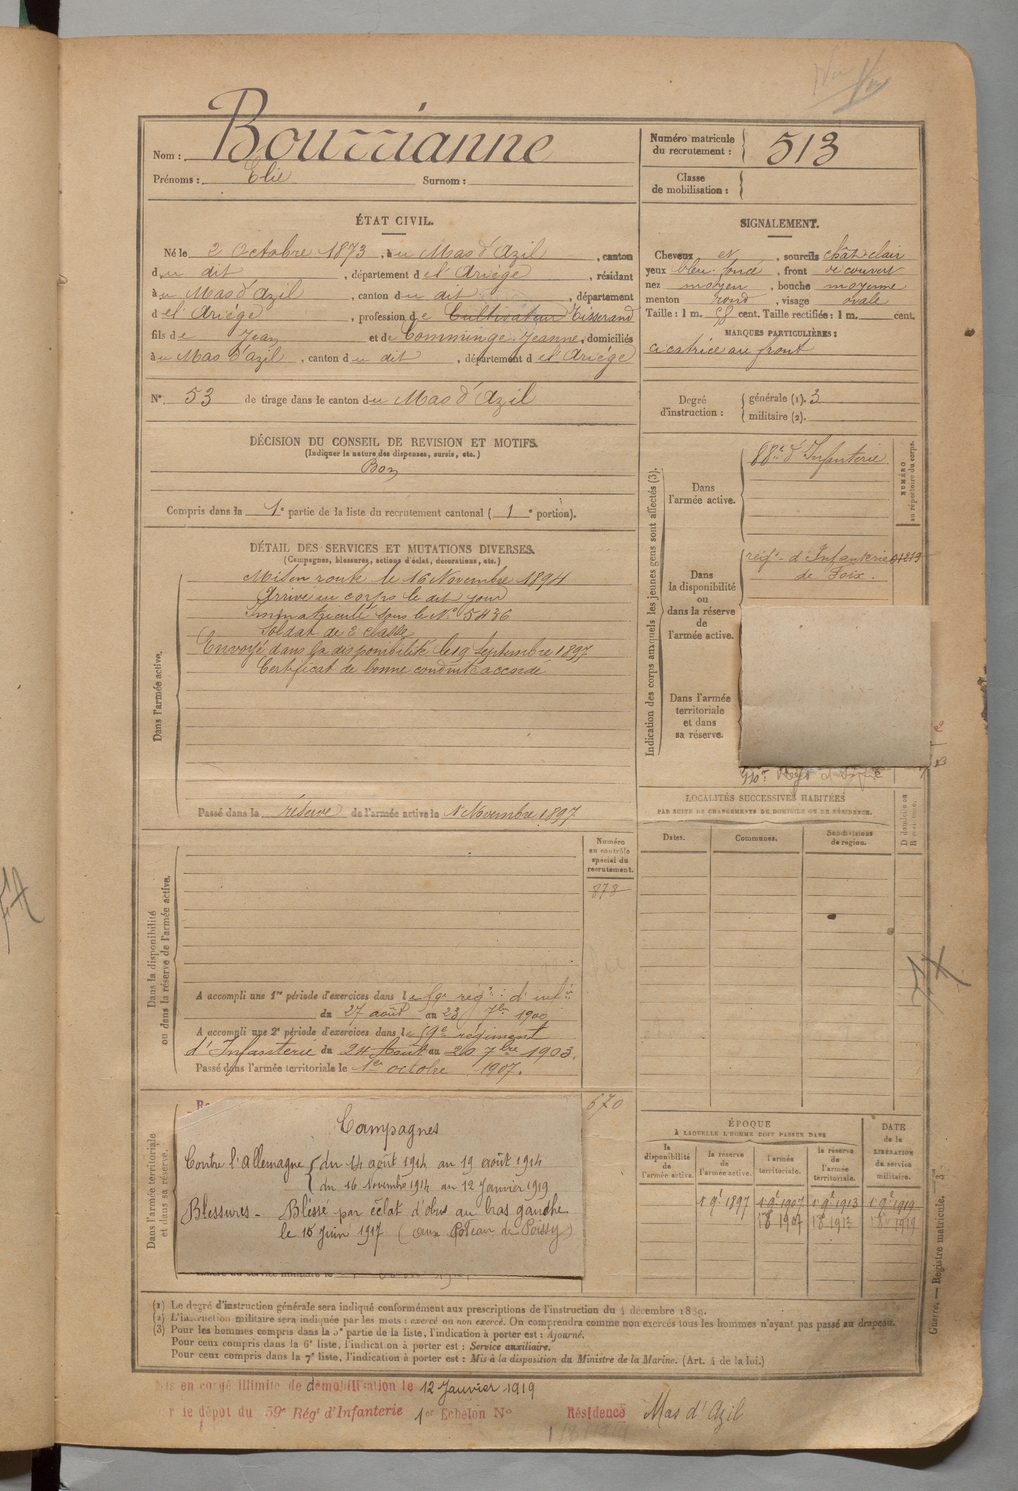 Nom : Bourrianne
Prénoms : Elie Surnom :
Numéro matricule du recrutement : 513
Classe de mobilisation :
ÉTAT CIVIL.
Né le 2 Octobre 1873, à u Mas d'Azil, canton
d u dit, département d e l'Ariège, résidant
à u Mas d'Azil, canton d u dit, département
d e l'Ariège, profession d e Cultivateur Tisserand
fils d e Jean et de Comminge Jeanne, domiciliés
à u Mas d'Azil, canton d u dit, département d e l'Ariège
N° 53 de tirage dans le canton d u Mas d'Azil
SIGNALEMENT.
Cheveux et, sourcils chât clair
yeux bleu foncé, front découvert
nez moyen, bouche moyenne
menton rond, visage ovale
Taille : 1 m. cent. Taille rectifiée : 1 m. cent.
MARQUES PARTICULIÈRES :
cicatrice au front
Degré d'instruction : générale (1). 3
militaire (2).
DÉCISION DU CONSEIL DE REVISION ET MOTIFS.
(Indiquer la nature des dispenses, sursis, etc.)
Bon
Compris dans la 1e partie de la liste du recrutement cantonal (1e portion).
DÉTAIL DES SERVICES ET MUTATIONS DIVERSES.
(Campagnes, blessures, actions d'éclat, décorations, etc.)
Dans l'armée active.
Mis en route le 16 Novembre 1894
Arrivé au corps le dit jour
Immatriculé sous le N° 5436
Soldat de 2e classe
Envoyé dans la disponibilité le 19 Septembre 1897
Certificat de bonne conduite accordé
Passé dans la réserve de l'armée active le 1 Novembre 1897
Indication des corps auxquels les jeunes gens sont affectés (3).
Dans l'armée active.
88e d'Infanterie
NUMÉRO au répertoire du corps.
Dans la disponibilité ou dans la réserve de l'armée active.
régt d'Infanterie 01219
de Foix.
Dans l'armée territoriale et dans sa réserve.
LOCALITÉS SUCCESSIVES HABITÉES
PAR SUITE DE CHANGEMENTS DE DOMICILE OU DE RÉSIDENCE.
Dates. Communes. Subdivisions de région.
Dans la disponibilité ou dans la réserve de l'armée active.
Numéro au contrôle spécial du recrutement.
873
A accompli une 1re période d'exercices dans le 59e régt d'infie
du 27 août au 23 7bre 1900
A accompli une 2e période d'exercices dans le 59e régiment
d'Infanterie du 24 Août au 20 7bre 1903.
Passé dans l'armée territoriale le 1er octobre 1907.
Dans l'armée territoriale et dans sa réserve.
670
Campagnes
Contre l'Allemagne du 14 août 1914 au 19 août 1914
du 16 Novembre 1914 au 12 Janvier 1919
Blessures - Blessé par éclat d'obus au bras gauche
le 15 Juin 1917 (aux Plateau de Poissy)
ÉPOQUE
À LAQUELLE L'HOMME DOIT PASSER DANS
la disponibilité de l'armée active. la réserve de l'armée active. l'armée territoriale. la réserve de l'armée territoriale.
DATE de la LIBÉRATION du service militaire.
1 9t 1897 1 9t 1907 1 9t 1913 1 9t 1919
1 8 1907 1 8 1913 1 8 1919
(1) Le degré d'instruction générale sera indiqué conformément aux prescriptions de l'instruction du 4 décembre 1889.
(2) L'instruction militaire sera indiquée par les mots : exercé ou non exercé. On comprendra comme non exercés tous les hommes n'ayant pas passé au drapeau.
(3) Pour les hommes compris dans la 5e partie de la liste, l'indication à porter est : Ajourné.
Pour ceux compris dans la 6e liste, l'indication à porter est : Service auxiliaire.
Pour ceux compris dans la 7e liste, l'indication à porter est : Mis à la disposition du Ministre de la Marine. (Art. 4 de la loi.)
Guerre. — Registre matricule. — 3
Mis en congé illimité de démobilisation le 12 Janvier 1919
r le dépôt du 59e Régt d'Infanterie 1er Echelon N° Résidence Mas d'Azil